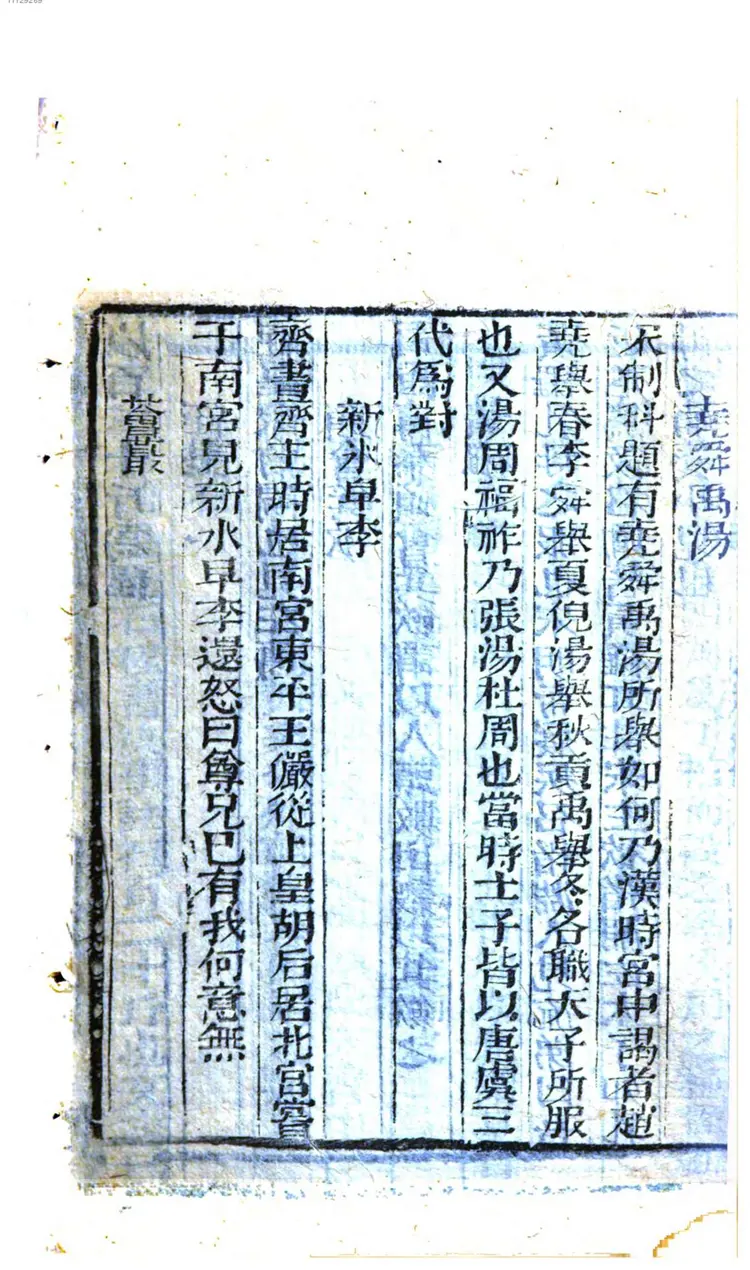 堯舜禹湯
宋制科題有堯舜禹湯所舉如何乃漢時宮中謁者趙
堯舉春李舜舉夏倪湯舉秋貢禹舉冬各職天子所服
也又湯周福祚乃張湯杜周也當時士子皆以唐虞三
代爲對
新氷早李
齊書齊主時居南宮東平王儼從上皇胡后居北宮嘗
于南宮見新氷早李還怒曰尊兄已有我何意無